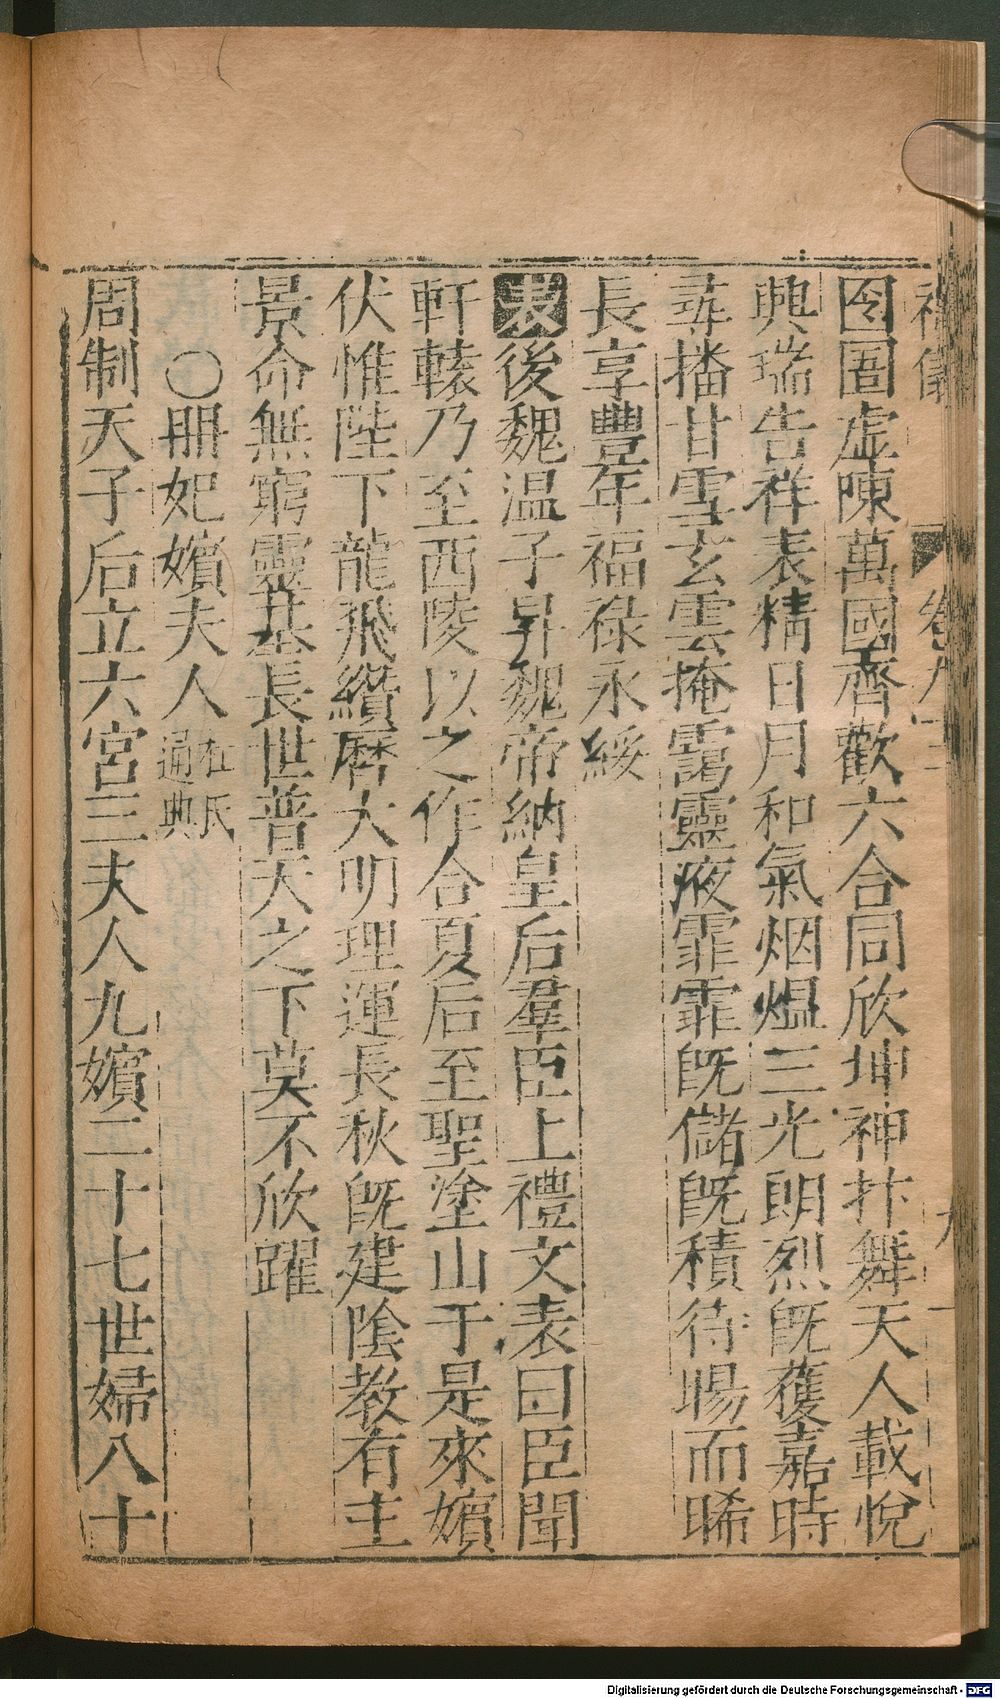 囹圄虛陳萬國齊歡六合同欣坤神抃舞天人載悅
興瑞告祥表精日月和氣烟熅三光朗烈旣獲嘉時
尋播甘雪玄雲掩靄靈液霏霏旣儲旣積待暘而晞
長享豐年福祿永綏
表後魏温子昇魏帝納皇后羣臣上禮文表曰臣聞
軒轅乃至西陵以之作合夏后至聖塗山于是來嬪
伏惟陛下龍飛纘曆大明理運長秋旣建陰教有主
景命無窮靈基長世普天之下莫不欣躍
○冊妃嬪夫人杜氏通典
周制天子后立六宮三夫人九嬪二十七世婦八十
Digitalisierung gefördert durch die Deutsche Forschungsgemeinschaft - DFG